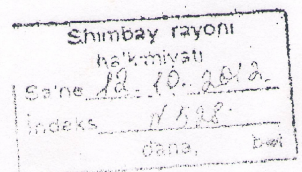 Shımbay rayonı
ha'kimiyatı
Sa'ne 12.10.2012.
Indeks N 528
dana, bet